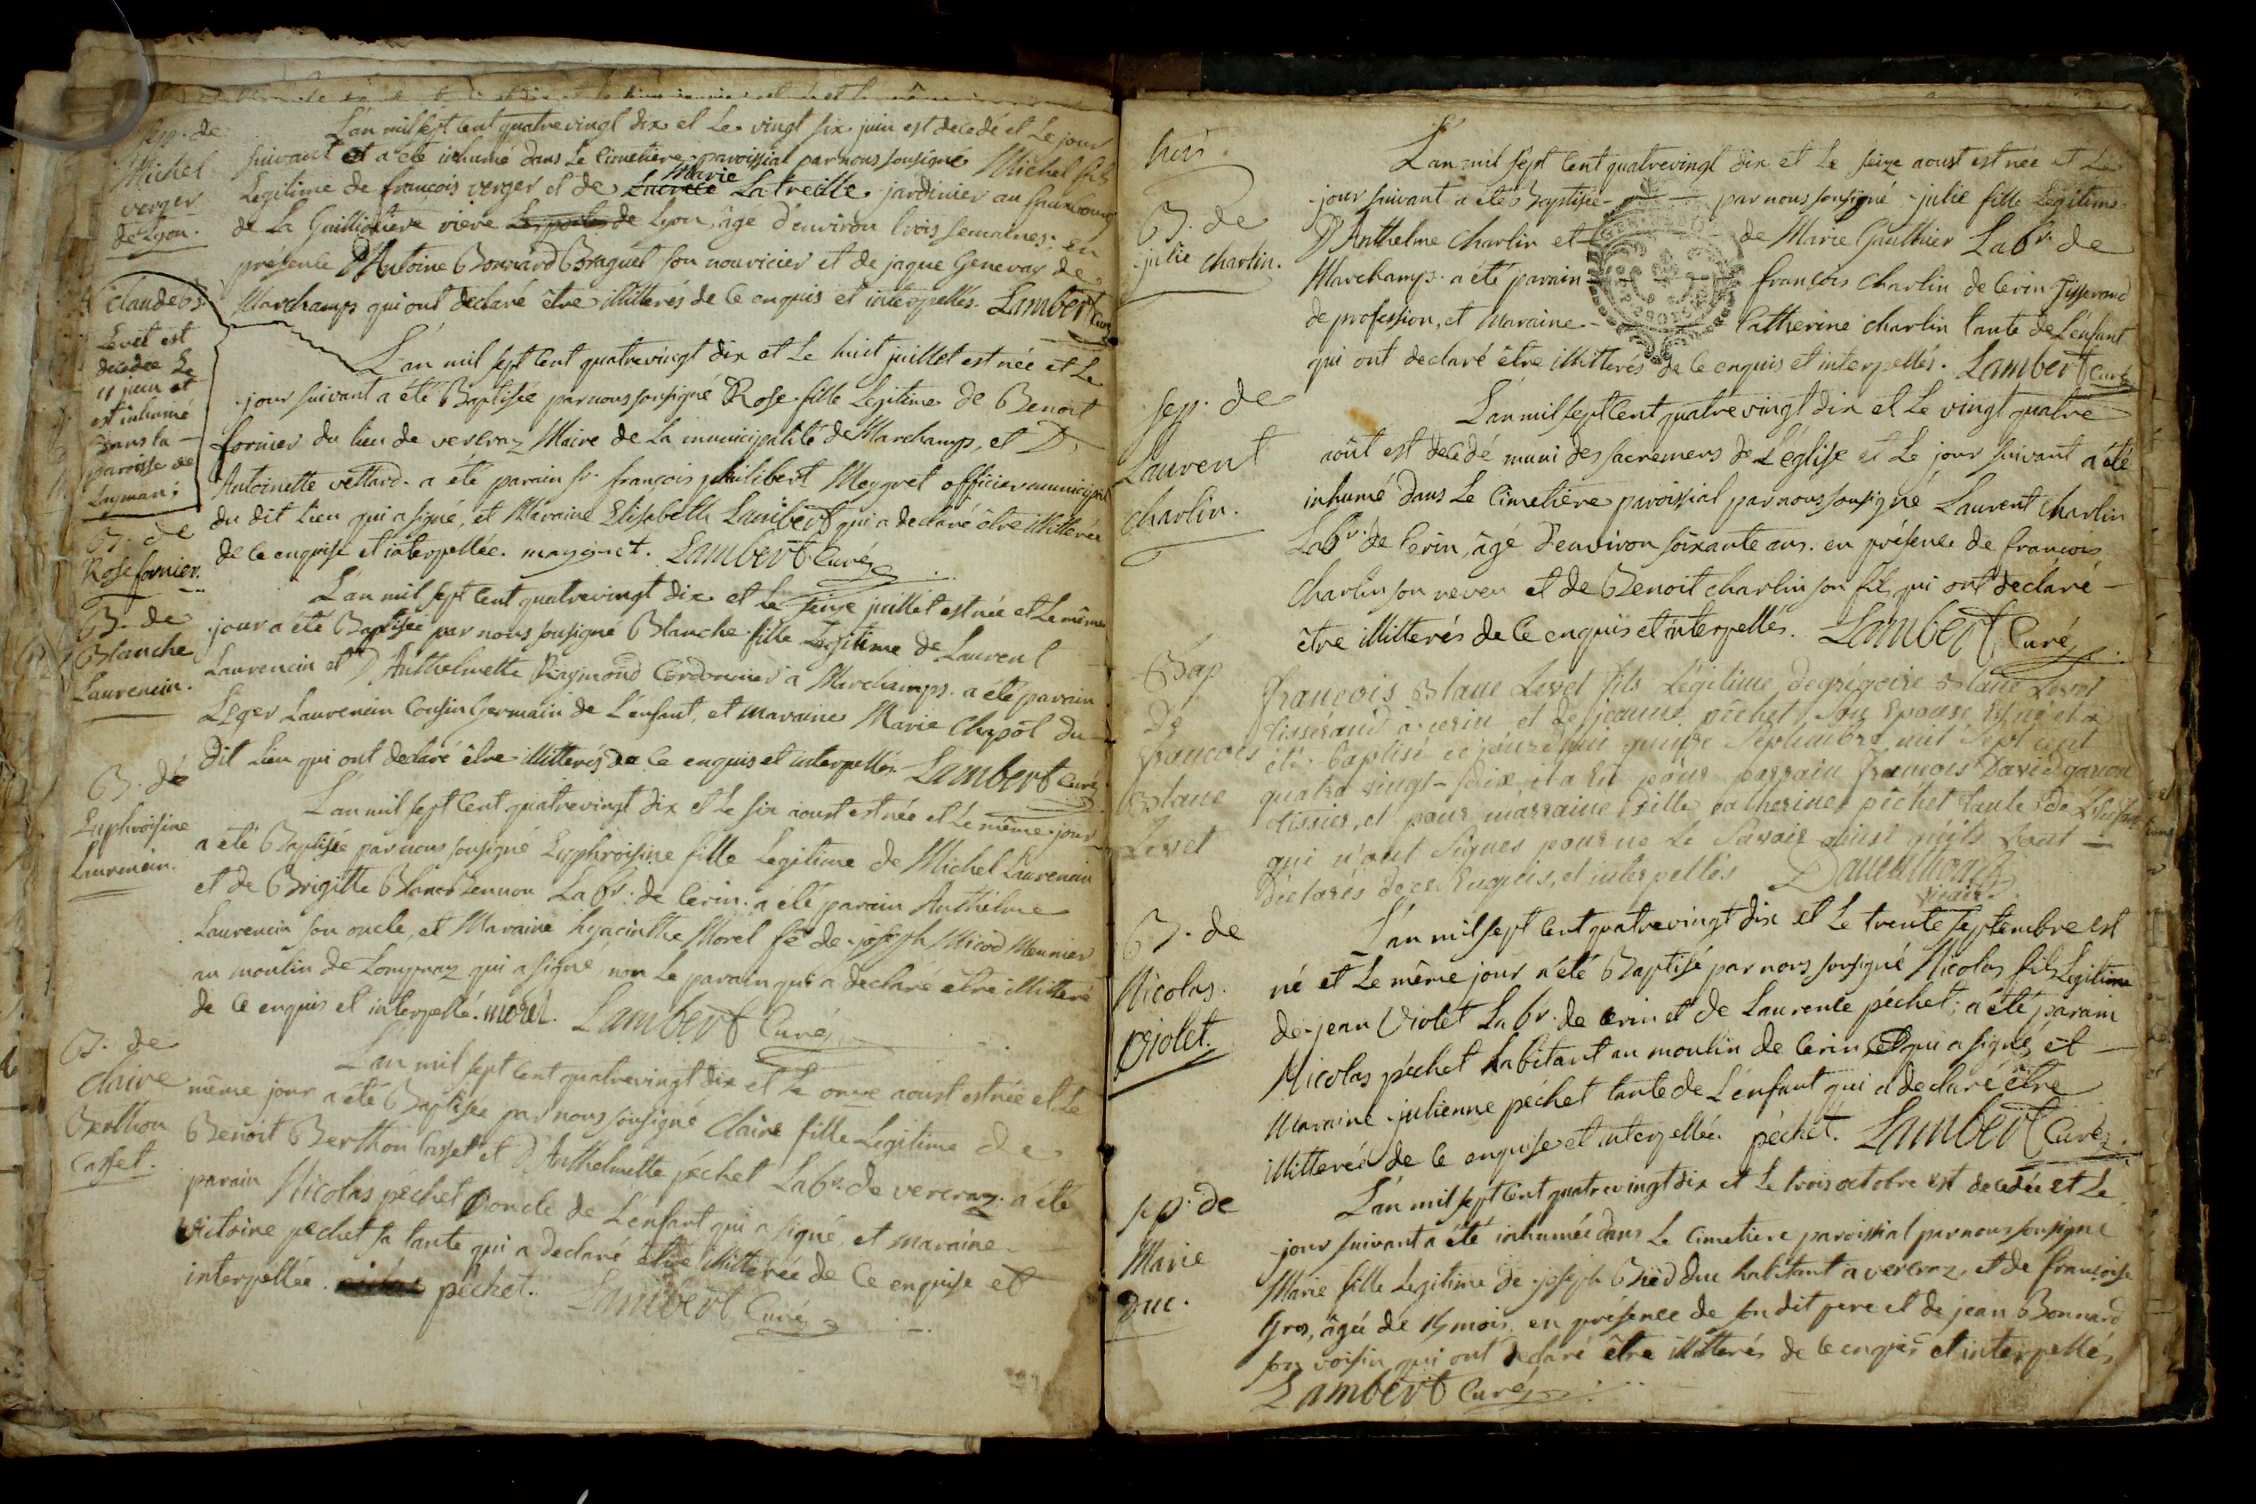 sep. de
Michel
verger
de Lyon.
L'an mil sept cent quatrevingt dix et Le vingt six juin est decedé et Le jour
suivant et a été inhumé dans Le Cimetiere paroissial par nous sousigné Michel fils
Marie
Legitime de françois verger et de Lucrece La treille jardinier au fauxbourg
de La Guilliotiere riere de Lyon, âgé d'environ trois semaines; en
présence d'Antoine Bonnard Braguet son nouricier et de jaque Genevay de
Marchamps qui ont declaré être illitterés de ce enquis et interpellés. Lambert Curé
Claude
Levet est
decedée Le
11 juin et
est inhumé
dans la
paroisse de
Lagman;
B. de
Rose fornier.
L'an mil sept cent quatrevingt dix et Le huit juillet est née et Le
jour suivant a été Baptisée par nous sousigné Rose fille Legitime de Benoit
fornier du lieu de vercraz Maire de La municipalité de Marchamps, et D
Antoinette vettard. a été parain sr. françois philibert Meygret officier municipal
du dit Lieu qui a signé, et Maraine Elisabeth Lambert qui a declaré être illitterée
de ce enquise et interpellée. maygret. Lambert Curé
B. de
Blanche
Laurencin.
L'an mil sept cent quatrevingt dix et Le seize juillet est née et Le même
jour a été Baptisée par nous sousigné Blanche fille Legitime de Laurent
Laurencin et D'Anthelmette Raymond Cordonnier a Marchamps. a été parain
Leger Laurencin Cousin Germain de L'enfant, et maraine Marie Chapot du
dit Lieu qui ont declaré être illitterés de ce enquis et interpellés. Lambert Curé
B. de
Euphroisine
Laurencin.
L'an mil sept cent quatrevingt dix et Le six aoust est née et Le même jour
a été Baptisée par nous sousigné Euphroisine fille Legitime de Michel Laurencin
et de Brigitte Blanc Bennon Labr. de Cerin. a été parain Anthelme
Laurencin son oncle, et Maraine hyacinthe Morel fe de joseph Micod Meunier
au moulin de Lompnaz qui a signé, non Le parain qui a declaré être illitteré
de ce enquis et interpellé. morel. Lambert Curé
B. de
Claire
Berthon
Casset.
L'an mil sept cent quatrevingt dix et Le onze aoust est née et Le
même jour a été Baptisée par nous sousigné Claire fille Legitime de
Benoit Berthon Casset et D'Anthelmette péchet Labr. de vercraz. a été
parain Nicolas péchet oncle de L'enfant qui a signé, et maraine
victoire pechet sa tante qui a declaré être illitterée de ce enquise et
interpellée. péchet. Lambert Curé
huit.
B. de
julie charlin.
L'an mil sept cent quatrevingt dix et Le seize aoust est née et Le
jour suivant a été Baptisée par nous sousigné julie fille Legitime
D'Anthelme Charlin et de Marie Gauthier Labr. de
Marchamps. a été parain françois Charlin de Cerin Tisserand
de profession, et Maraine Catherine charlin tante de L'enfant
qui ont declaré être illitterés de ce enquis et interpellés. Lambert Curé
sep. de
Laurent
charlin.
L'an mil sept cent quatrevingt dix et Le vingt quatre
août est decedé muni des sacremens de L'église et Le jour suivant a été
inhumé dans Le Cimetière paroissial par nous sousigné Laurent charlin
Labr. de Cerin, âgé d'environ soixante ans. en présence de françois
Charlin son neveu et de Benoit charlin son fils qui ont déclaré
être illitterés de ce enquis et interpellés. Lambert Curé
Bap
De
francois
Blanc
Levet
francois Blanc Levet fils Légitime de grégoire Blanc Levet
tisserand à cerin et de jeanne pêchet son Epouse est né et a
été baptisé ce jourd'hui quinze Septembre mil Sept cent
quatre vingt-dix, il a eu pour parrain francois David garcon
tissier, et pour marraine fille catherine pêchet tante de L'enfant
qui n'ont signes pour ne Le Savoir ainsi qu'ils L'ont
Déclarés de ce Enquis, et interpellés
vicaire
B. de
Nicolas
Violet.
L'an mil sept cent quatrevingt dix et Le trente septembre est
né et Le même jour a été Baptisé par nous sousigné Nicolas fils Legitime
de jean Violet Labr. de Cerin et de Laurence péchet; a été parain
Nicolas péchet habitant au moulin de Cerin qui a signé, et
Maraine julienne péchet tante de L'enfant qui a declaré être
illitterée de ce enquise et interpellée. péchet. Lambert Curé
sep. de
Marie
Duc.
L'an mil sept cent quatrevingt dix et Le trois octobre est decedée et Le
jour suivant a été inhumée dans Le Cimetiere paroissial par nous sousigné
Marie fille Legitime de joseph Bied duc habitant a vercraz, et de françoise
Gros, âgée de 15 mois. en présence de son dit pere et de jean Bonnard
son voisin qui ont declaré être illitterés de ce enquis et interpellés.
Lambert Curé